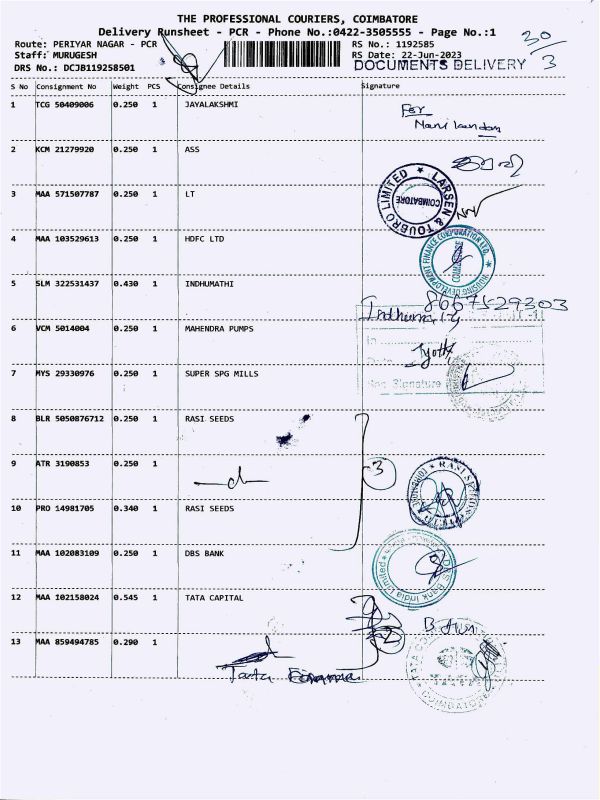 THE PROFESSIONAL COURIERS, COIMBATORE
Delivery Runsheet - PCR - Phone No.:0422-3505555 - Page No.:1
Route: PERIYAR NAGAR - PCR
RS No.: 1192585
30/3
Staff: MURUGESH
RS Date: 22-Jun-2023
DRS No.: DCJB119258501
DOCUMENTS DELIVERY
S No Consignment No Weight PCS Consignee Details Signature
1 TCG 50409006 0.250 1 JAYALAKSHMI
For
Manikandan
2 KCM 21279920 0.250 1 ASS
3 MAA 571507787 0.250 1 LT
LARSEN & TOUBRO LIMITED
COIMBATORE
4 MAA 103529613 0.250 1 HDFC LTD
HOUSING DEVELOPMENT FINANCE CORPORATION LTD.
COIMBATORE
5 SLM 322531437 0.430 1 INDHUMATHI
8667529303
6 VCM 5014004 0.250 1 MAHENDRA PUMPS
In
Jyothi
Date
7 MYS 29330976 0.250 1 SUPER SPG MILLS
Signature
8 BLR 5050876712 0.250 1 RASI SEEDS
9 ATR 3190853 0.250 1
3
RASI
10 PRO 14981705 0.340 1 RASI SEEDS
11 MAA 102083109 0.250 1 DBS BANK
DBS Bank India Limited
12 MAA 102158024 0.545 1 TATA CAPITAL
2
13 MAA 859494785 0.290 1
TATA
COIMBATORE
Tata